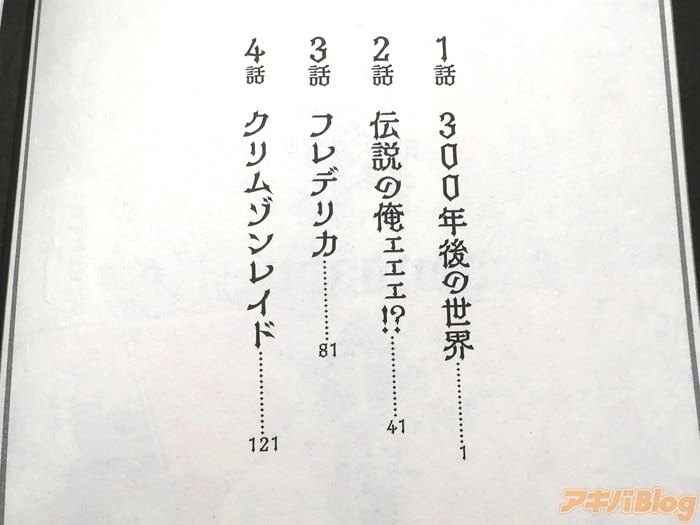 1話 300年後の世界……………1
2話 伝説の俺ェェェ!?……………41
3話 フレデリカ……………81
4話 クリムゾンレイド……………121
アキバBlog